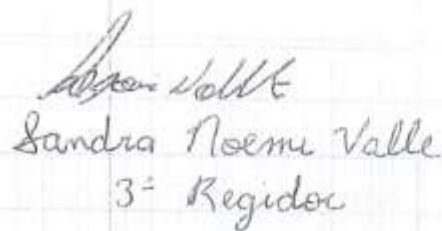 Sandra Noemi Valle
3= Regidor